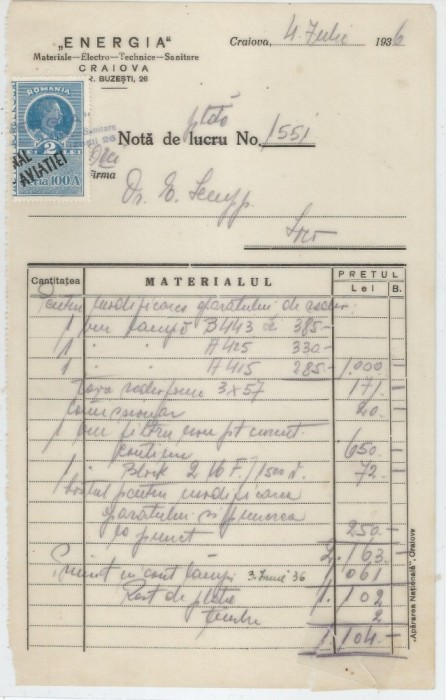 „ENERGIA"
Materiale—Electro—Technice—Sanitare
CRAIOVA
R. BUZEȘTI, 26
Craiova, 4 Iulie 1936
ROMANIA
2
AL AVIAȚIEI
ria 100A
Notă de lucru No. 1551
firma
Dr. E.
Cantitatea MATERIALUL PREȚUL
Lei B.
Pentru modificarea aparatului de radio:
1 buc lampă B443 de 385-
1 " " A425 330-
1 " " A415 285- 1,000 —
Taxa radiofonie 3x57 171 —
20 —
1 buc filtru nou pt curent
continu 650 —
1 " Block 2 M F/1500 v. 72 —
Costul pentru modificarea
aparatului si punerea
la punct 250 —
2.163 —
Primit in cont lămpi 3. Iunie 36 1 061 —
Rest de plată 1.102
timbru 2
1 104 —
„Apărarea Națională", Craiova